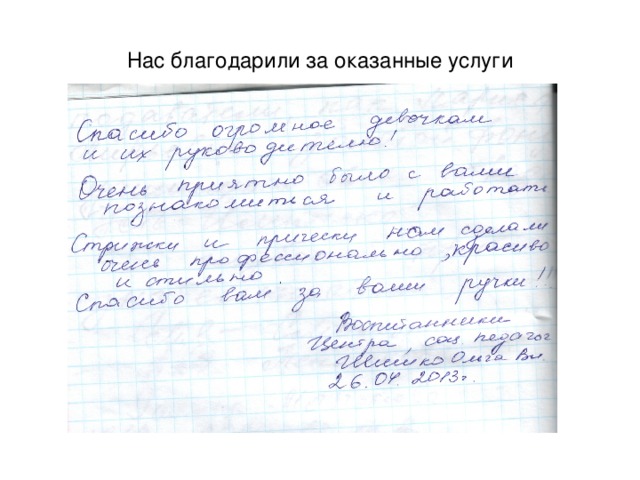 Нас благодарили за оказанные услуги
Спасибо огромное девочкам
и их руководителю!
Очень приятно было с вами
познакомиться и работать
Стрижки и прически нам сделали
очень профессионально, красиво
и стильно.
Спасибо вам за ваши ручки!!!
Воспитанники
Центра, соц. педагог
Ольга Вл.
26.04 2013г.